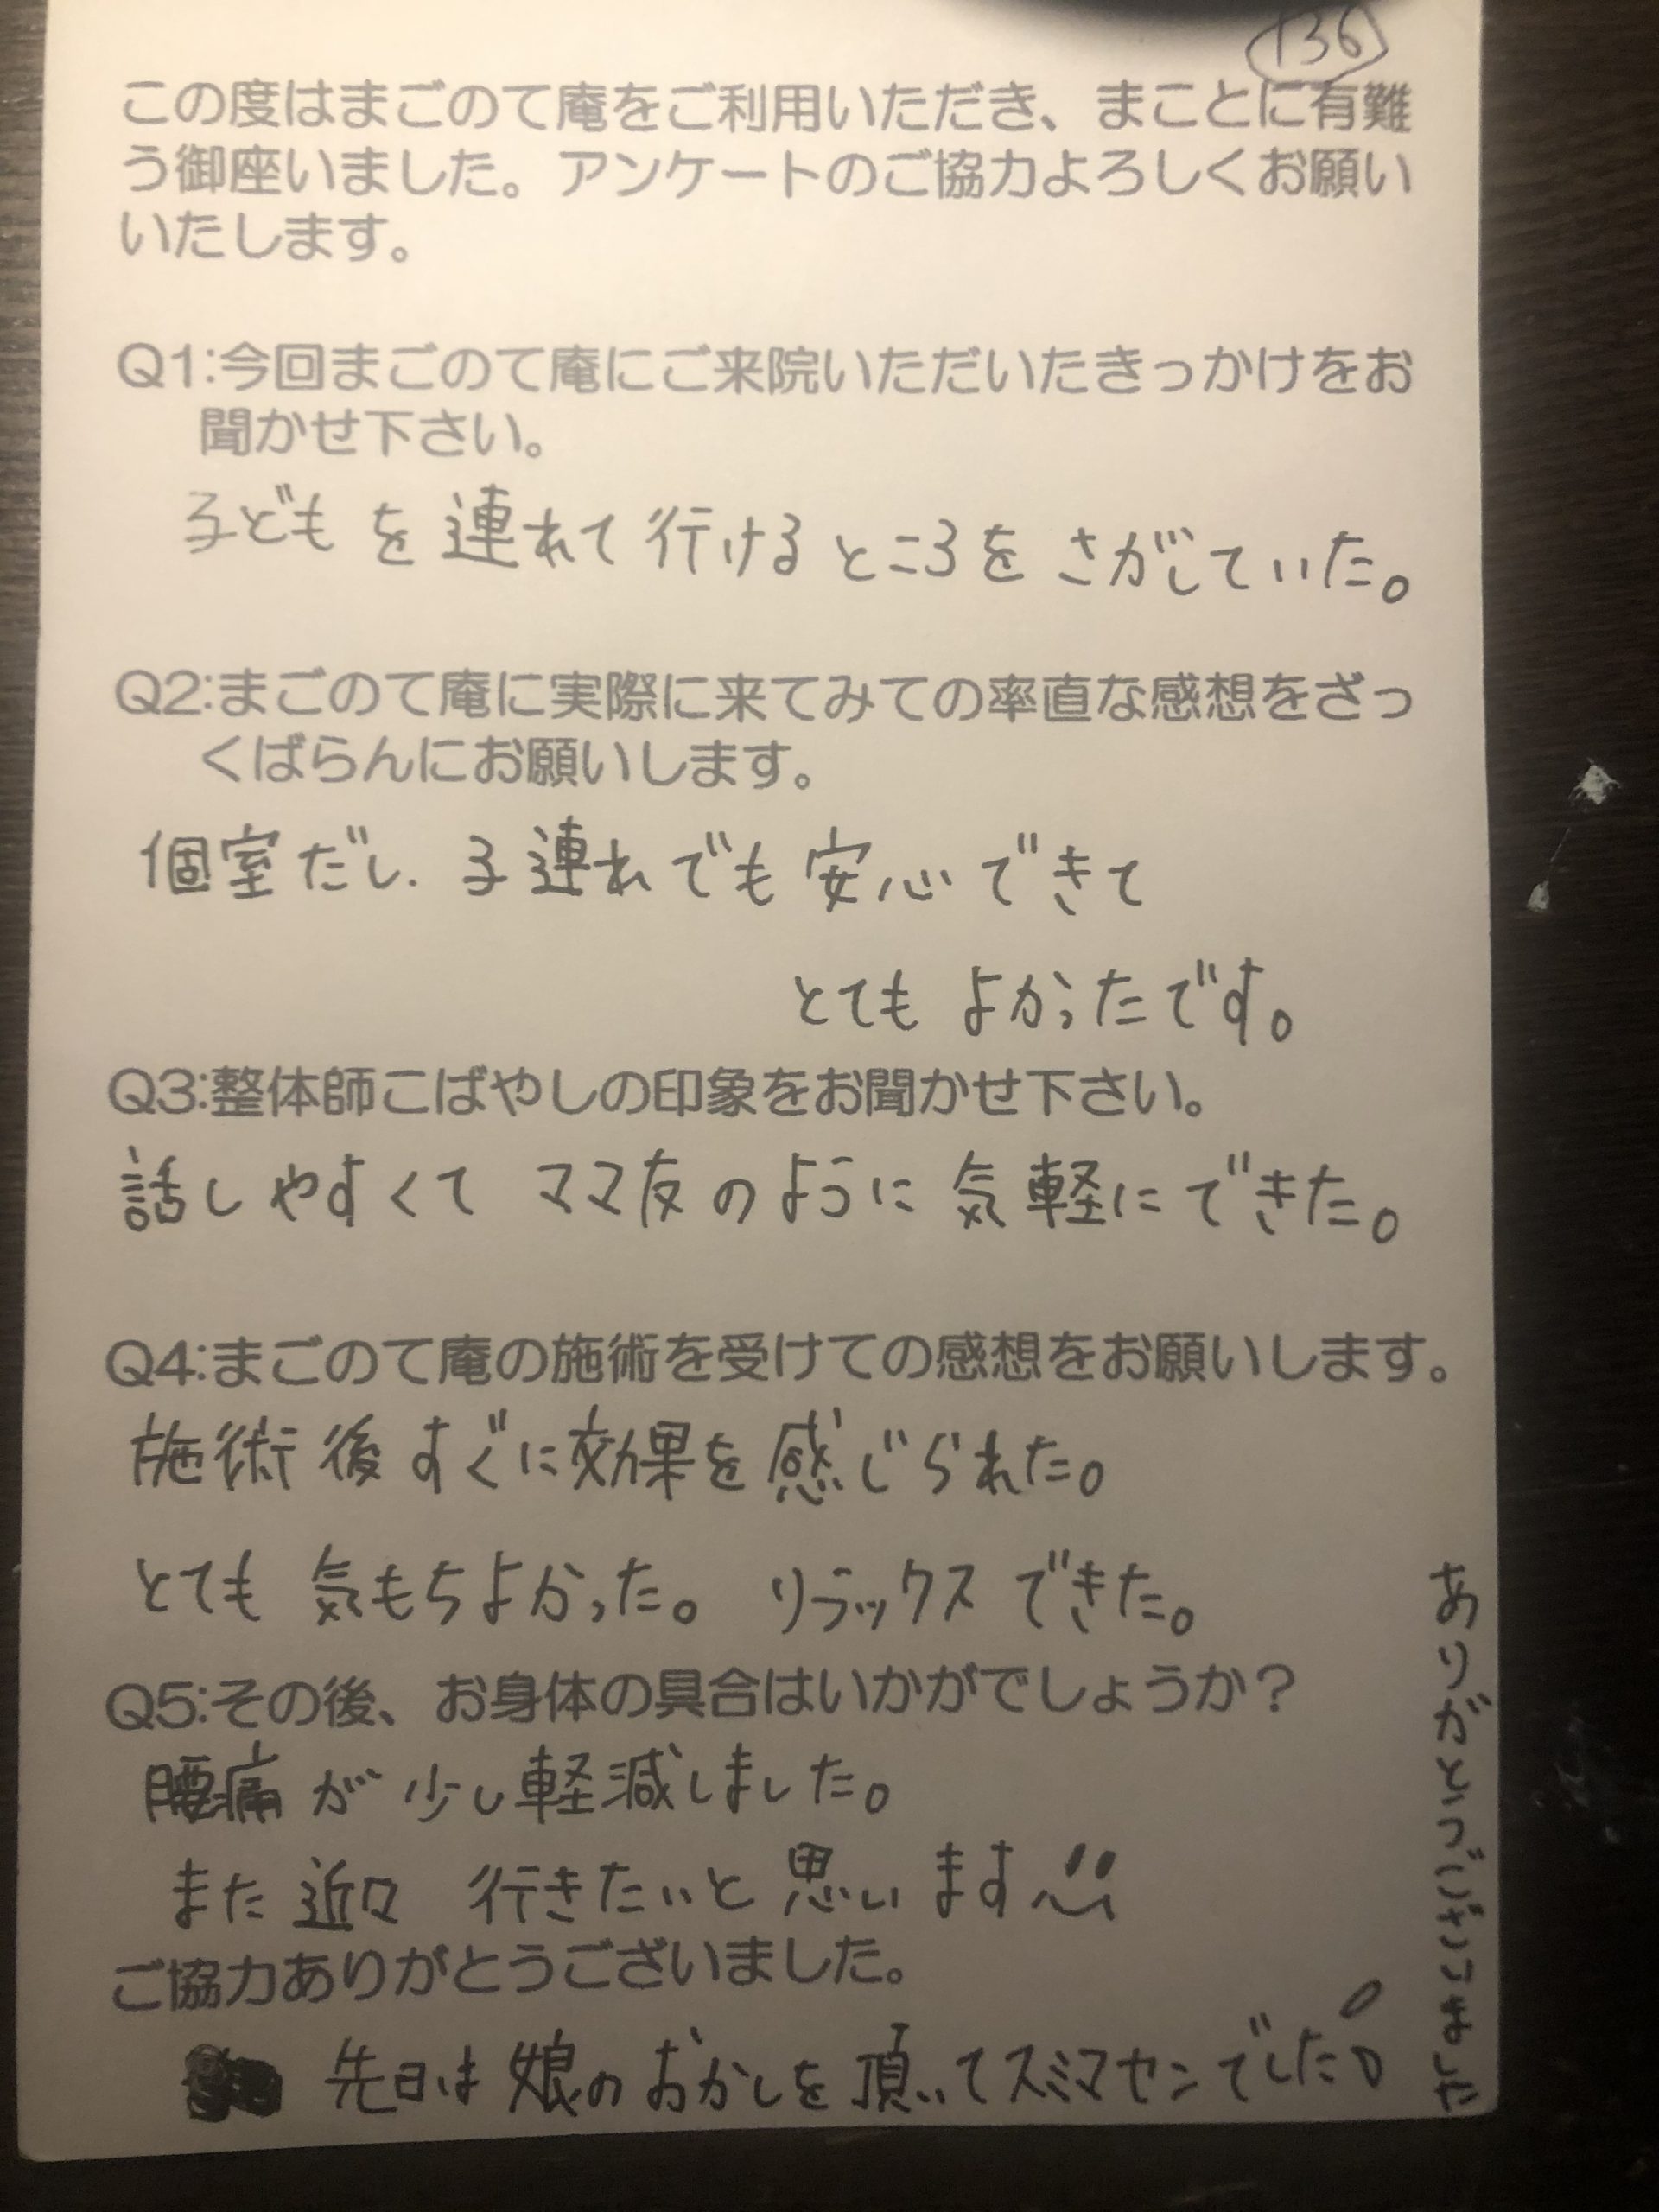 136
この度はまごのて庵をご利用いただき、まことに有難
う御座いました。アンケートのご協力よろしくお願い
いたします。
Q1:今回まごのて庵にご来院いただいたきっかけをお
聞かせ下さい。
子どもを連れて行けるところをさがしていた。
Q2:まごのて庵に実際に来てみての率直な感想をざっ
くばらんにお願いします。
個室だし、子連れでも安心できて
とてもよかったです。
Q3:整体師こばやしの印象をお聞かせ下さい。
話しやすくてママ友のように気軽にできた。
Q4:まごのて庵の施術を受けての感想をお願いします。
施術後すぐに効果を感じられた。
とても気もちよかった。リラックスできた。
Q5:その後、お身体の具合はいかがでしょうか？
腰痛が少し軽減しました。
また近々行きたいと思います
ご協力ありがとうございました。
先日は娘のおかしを頂いてスミマセンでした!
ありがとうございました